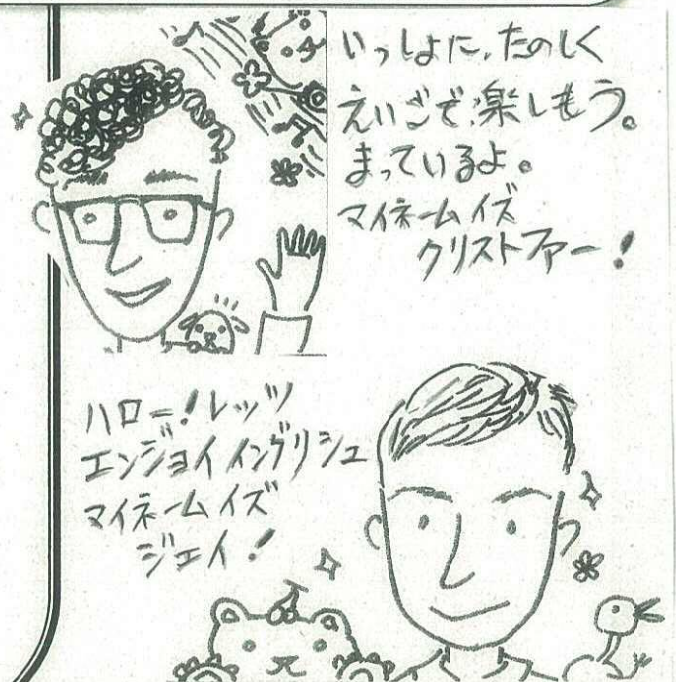 いっしょに、たのしく
えいごで楽しもう。
まっているよ。
マイネームイズ
クリストファー!
ハロー!レッツ
エンジョイイングリシュ
マイネームイズ
ジェイ!